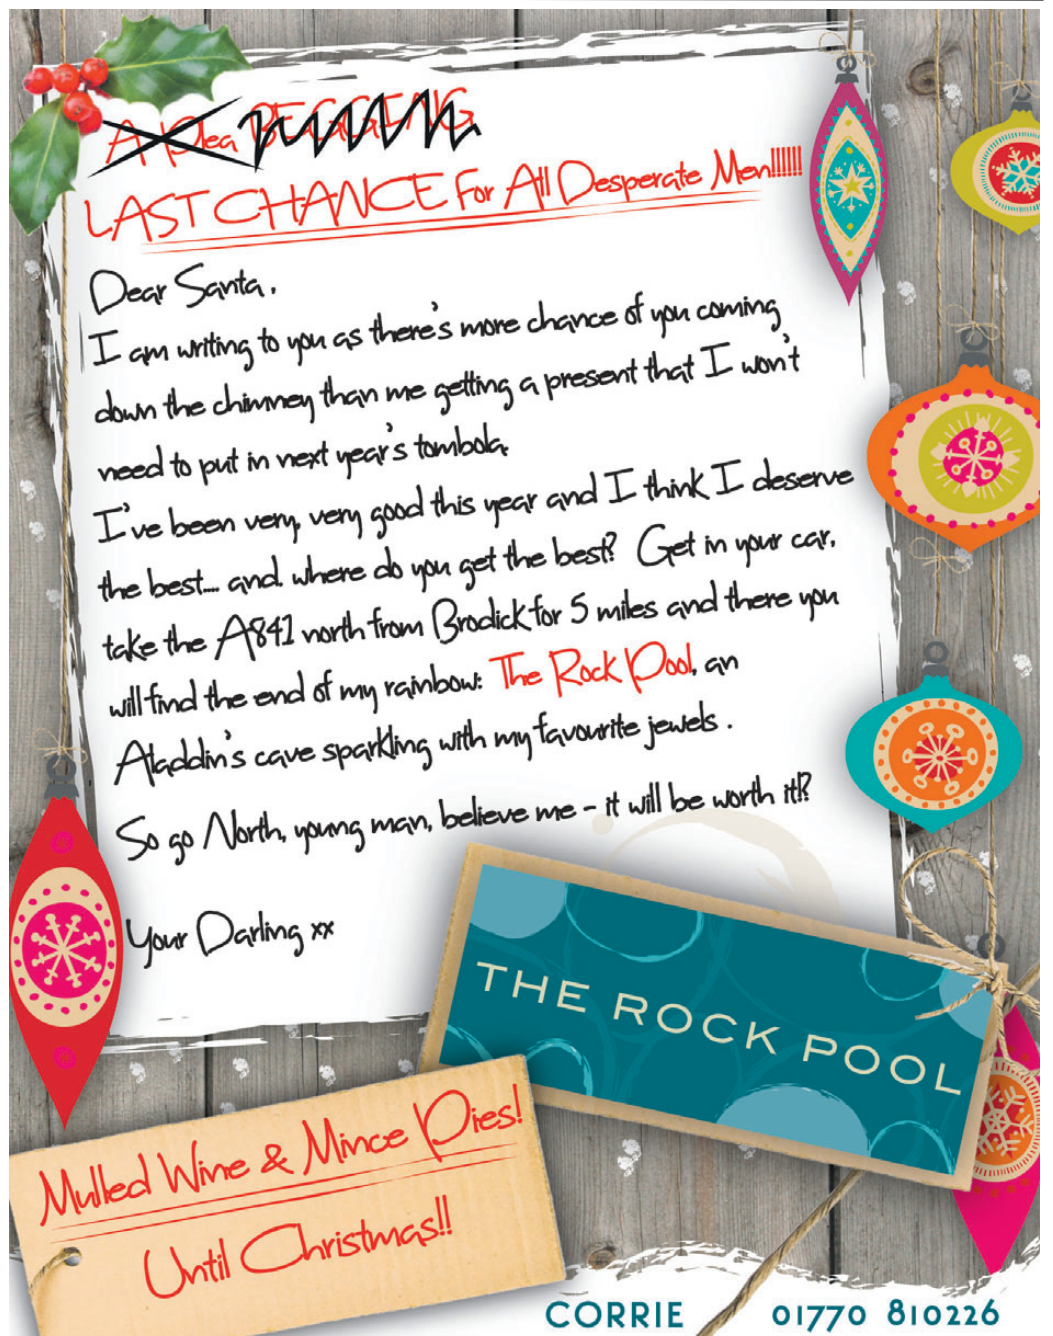 A Plea BEGGING
LAST CHANCE For All Desperate Men!!!!!!
Dear Santa,
I am writing to you as there's more chance of you coming
down the chimney than me getting a present that I won't
need to put in next year's tombola.
I've been very, very good this year and I think I deserve
the best.... and where do you get the best? Get in your car,
take the A841 north from Brodick for 5 miles and there you
will find the end of my rainbow: The Rock Pool, an
Aladdin's cave sparkling with my favourite jewels .
So go North, young man, believe me - it will be worth it!?
Your Darling xx
THE ROCK POOL
Mulled Wine & Mince Pies!
Until Christmas!!
CORRIE 01770 810226